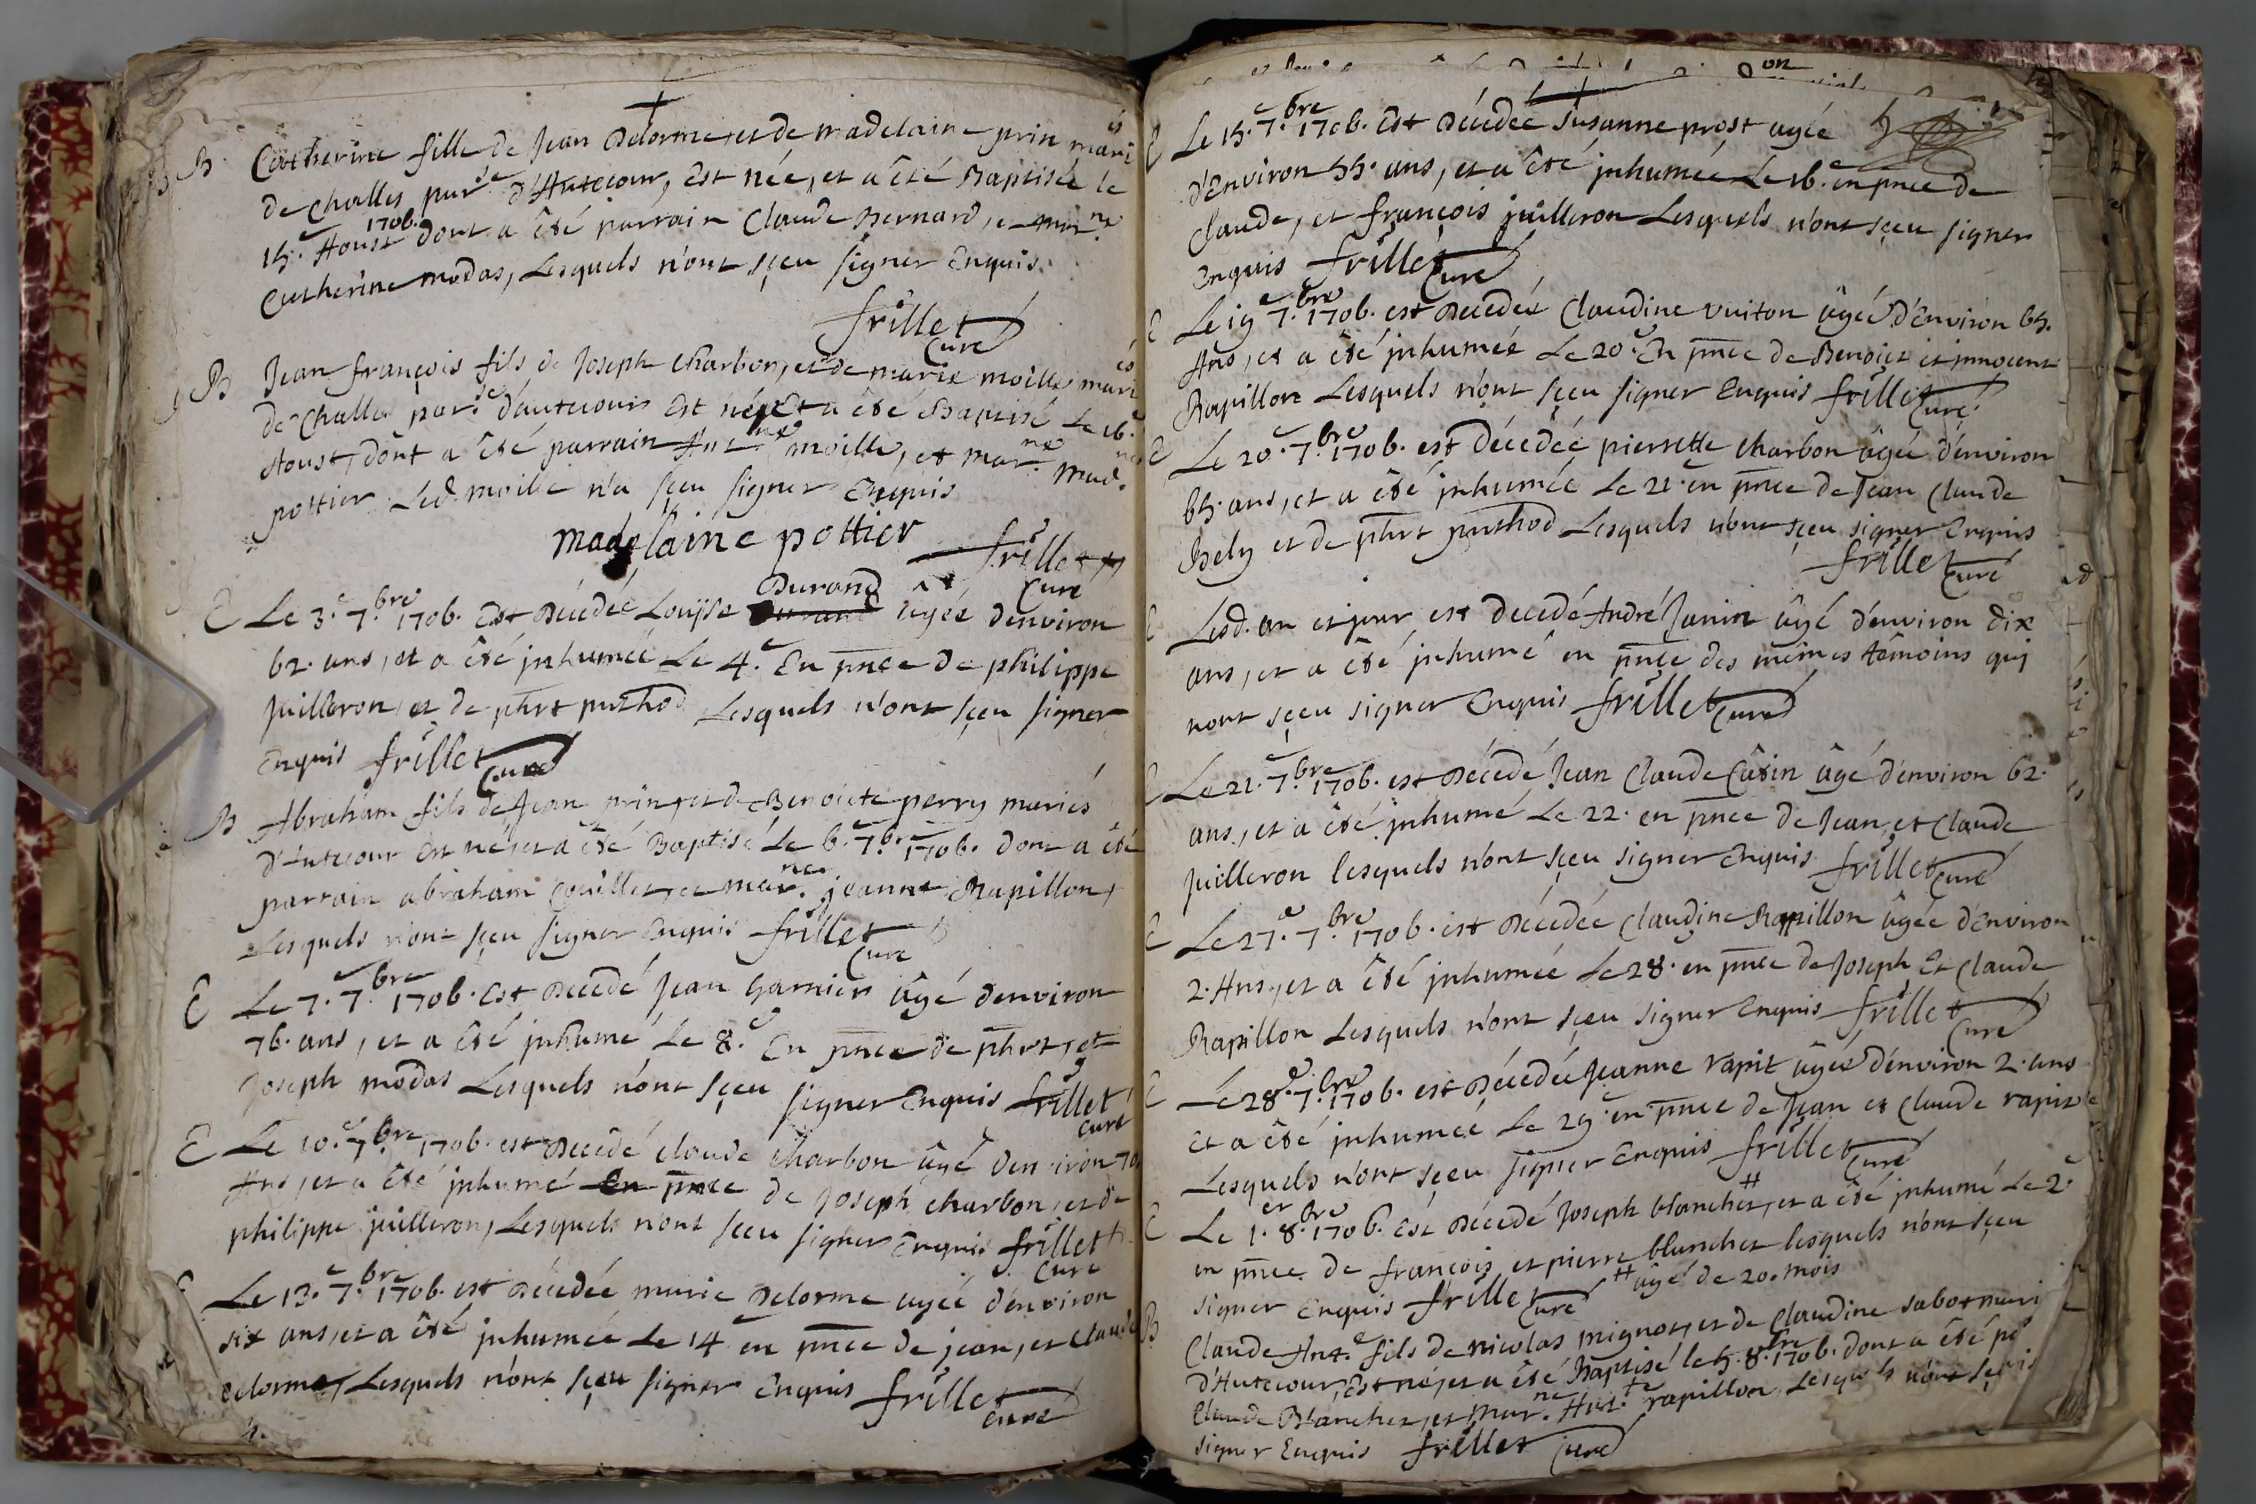 B Catherine fille de Jean Delorme, et de madelaine prin mariés
de Challes parse d'Hautecour, Est née, et a êté Baptisée le
15.e Aoust 1706. dont a êté parrain Claude Bernard, et marne
Catherine modas, Lesquels n'ont sçeu signer Enquis.
frillet
Curé
B Jean françois fils de Joseph Charbon, et de marie moille mariés
de Challes parse d'autecour Est né, Et a êté Baptisé Le 16.e
Aoust, dont a êté parrain Antne moille, et marne Madne
pottier Led. moille n'a sçeu signer Enquis
madelaine pottier
frillet
Curé
E Le 3.e 7.bre 1706. Est Décedée Louÿse Durand âgée d'environ
62. ans, et a êté jnhumée Le 4.e En pnce de philippe
juilleron, et de phrt puthod Lesquels n'ont sçeu signer
Enquis frillet Curé
B Abraham fils de Jean prin, et de Benoiete perry mariés
d'Autecour Est né, et a êté Baptisé Le 6.e 7.bre 1706. dont a êté
parrain abraham Couillet, et marne jeanne Rapillon,
Lesquels n'ont sçeu signer Enquis frillet
Curé
E Le 7.e 7.bre 1706. Est Décedé Jean Garnier âgé d'environ
76. ans, et a êté jnhumé Le 8.e En pnce de phrt, et
Joseph modas Lesquels n'ont sçeu signer Enquis frillet
Curé
E Le 10.e 7.bre 1706. est Décedé claude Charbon âgé d'environ 70
Ans, et a êté jnhumé En pnce de Joseph charbon, et de
philippe juilleron, Lesquels n'ont sçeu signer Enquis frillet
Curé
E Le 13.e 7.bre 1706. est Décedée marie Delorme agée d'environ
six ans, et a êté jnhumée Le 14 en pnce de jean, et Claude
delorme, Lesquels n'ont sçeu signer Enquis frillet
Curé
E Le 15.e 7.bre 1706. Est Décedée Susanne prost agée
d'Environ 55. ans, et a êté jnhumée Le 16.e en pnce de
Claude, et françois juilleron Lesquels n'ont sçeu signer
Enquis frillet Curé
E Le 19.e 7.bre 1706. est Decedée Claudine vuiton âgée d'Environ 65.
Ans, et a êté jnhumée Le 20.e En pnce de Benoiet et jnnocent
Rapillon Lesquels n'ont sçeu signer Enquis frillet Curé
E Le 20.e 7.bre 1706. est décedée pierrette charbon âgée d'environ
65. ans, et a êté jnhumée Le 21.e en pnce de Jean Claude
Bely et de phrt puthod Lesquels n'ont sçeu signer Enquis
frillet Curé
E Lesd. an et jour est decedé André Janin âgé d'environ dix
ans, et a êté jnhumé en pnce des mêmes têmoins qui
n'ont sçeu signer Enquis frillet Curé
E Le 21.e 7.bre 1706. est Décedé Jean Claude Câtin âgé d'environ 62.
ans, et a êté jnhumé Le 22. en pnce de Jean, et Claude
juilleron lesquels n'ont sçeu signer Enquis frillet Curé
E Le 27.e 7.bre 1706. est Décedée Claudine Rapillon âgée d'Environ
2. Ans, et a êté jnhumée Le 28. en pnce de Joseph Et Claude
Rapillon Lesquels n'ont sçeu signer Enquis frillet
Curé
E Le 28.e 7.bre 1706. est Décedée Jeanne rapit âgée d'environ 2. ans
Et a êté jnhumée Le 29.e en pnce de Jean et Claude rapit
Lesquels n'ont sçeu signer Enquis frillet Curé
E Le 1.er 8.bre 1706. Est Décedé Joseph blanchet, # et a êté jnhumé Le 2.e
en pnce de françois et pierre blanchet lesquels n'ont sçeu
signer Enquis frillet Curé # âgé de 20. mois
B Claude Ant.e fils de nicolas mignot, et de Claudine sabot mari
d'Hutecour, Est né, et a êté Baptisé le 5. 8.bre 1706. dont a êté pa
Claude Blanchet, et marne Ant.te rapillon Lesquels n'ont sçeu
signer Enquis frillet Curé